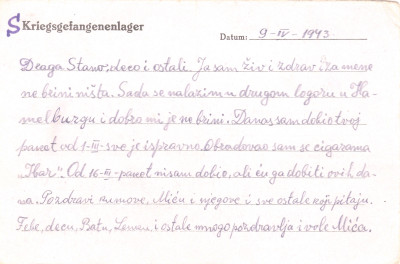 S Kriegsgefangenenlager
Datum: 9-IV-1943
Draga Stano; deco i ostali. Ja sam živ i zdrav i za mene
ne brini ništa. Sada se nalazim u drugom logoru u Ha-
melburgu i dobro mi je ne brini. Danas sam dobio tvoj
paket od 1-III- sve je ispravno. Obradovao sam se cigarama
"Ibar". Od 16-II- paket nisam dobio, ali ću ga dobiti ovih da-
na. Pozdravi kumove, Miću i njegove i sve ostale koji pitaju.
Tebe, decu, Batu, i ostale mnogo pozdravlja i vole Mića.